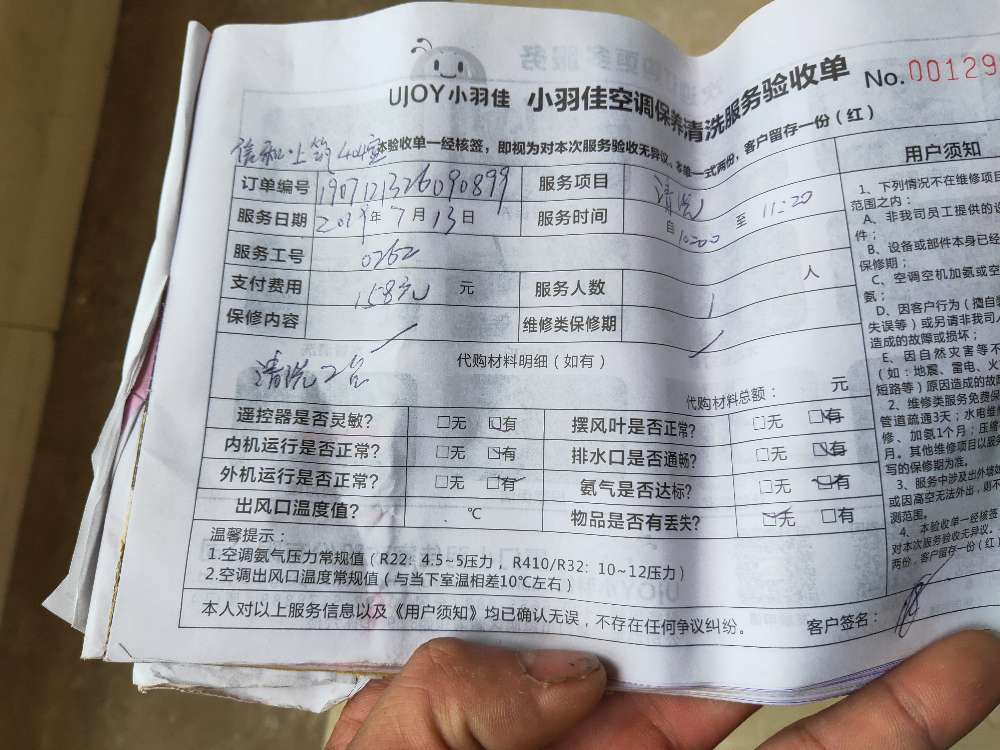 UJOY小羽佳 小羽佳空调保养清洗服务验收单 No.00129
本验收单一经核签，即视为对本次服务验收无异议。本单一式两份，客户留存一份（红）
订单编号 1907121326090899 服务项目 清洗
服务日期 2019年7月13日 服务时间 自10:00至11:20
服务工号 0262
支付费用 158元 元 服务人数 1 人
保修内容 维修类保修期
代购材料明细（如有）
清洗2台
代购材料总额： 元
遥控器是否灵敏？ □无 □有 摆风叶是否正常？ □无 □有
内机运行是否正常？ □无 □有 排水口是否通畅？ □无 □有
外机运行是否正常？ □无 □有 氨气是否达标？ □无 □有
出风口温度值？ ℃ 物品是否有丢失？ □无 □有
温馨提示：
1.空调氨气压力常规值（R22：4.5~5压力，R410/R32：10~12压力）
2.空调出风口温度常规值（与当下室温相差10℃左右）
本人对以上服务信息以及《用户须知》均已确认无误，不存在任何争议纠纷。 客户签名：
用户须知
1、下列情况不在维修项目
范围之内：
A、非我司员工提供的设
件；
B、设备或部件本身已经
保修期；
C、空调空机加氨或空
氨；
D、因客户行为（擅自
失误等）或另请非我司人
造成的故障或损坏；
E、因自然灾害等不
（如：地震、雷电、火
短路等）原因造成的故
2、维修类服务免费保
管道疏通3天；水电维
修、加氨1个月；压缩
月。其他维修项目以服
写的保修期为准。
3、服务中涉及出外墙
或因高空无法外出，则不
测范围。
4、本验收单一经核签
对本次服务验收无异议。
两份，客户留存一份（红）